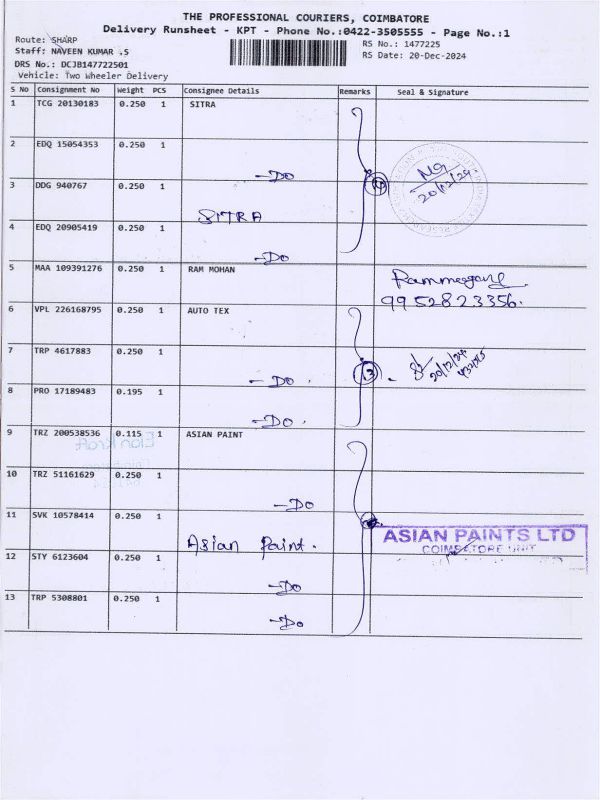 THE PROFESSIONAL COURIERS, COIMBATORE
Delivery Runsheet - KPT - Phone No.:0422-3505555 - Page No.:1
Route: SHARP
RS No.: 1477225
Staff: NAVEEN KUMAR .S
RS Date: 20-Dec-2024
DRS No.: DCJB147722501
Vehicle: Two Wheeler Delivery
S No Consignment No Weight PCS Consignee Details Remarks Seal & Signature
1 TCG 20130183 0.250 1 SITRA
2 EDQ 15054353 0.250 1
-DO
20/12/24
3 DDG 940767 0.250 1
SITRA
4 EDQ 20905419 0.250 1
-DO
5 MAA 109391276 0.250 1 RAM MOHAN
9952823356.
6 VPL 226168795 0.250 1 AUTO TEX
7 TRP 4617883 0.250 1
-DO.
13
20/12/24
8 PRO 17189483 0.195 1
-DO.
9 TRZ 200538536 0.115 1 ASIAN PAINT
10 TRZ 51161629 0.250 1
-DO
11 SVK 10578414 0.250 1
Asian Paint.
ASIAN PAINTS LTD
COIMBATORE UNIT
12 STY 6123604 0.250 1
-DO
13 TRP 5308801 0.250 1
-DO